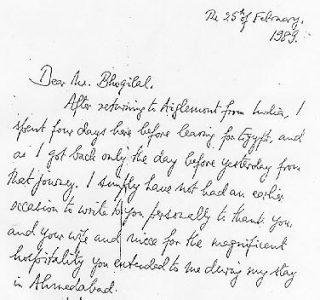 The 25th of February.
1983.
Dear Mr. Bhogilal.
After returning to Aiglemont from India, I
spent four days here before leaving for Egypt, and
as I got back only the day before yesterday from
that journey. I simply have not had an earlier
occasion to write to you personally to thank you
and your wife and niece for the magnificent
hospitality you extended to me during my stay
in Ahmedabad.